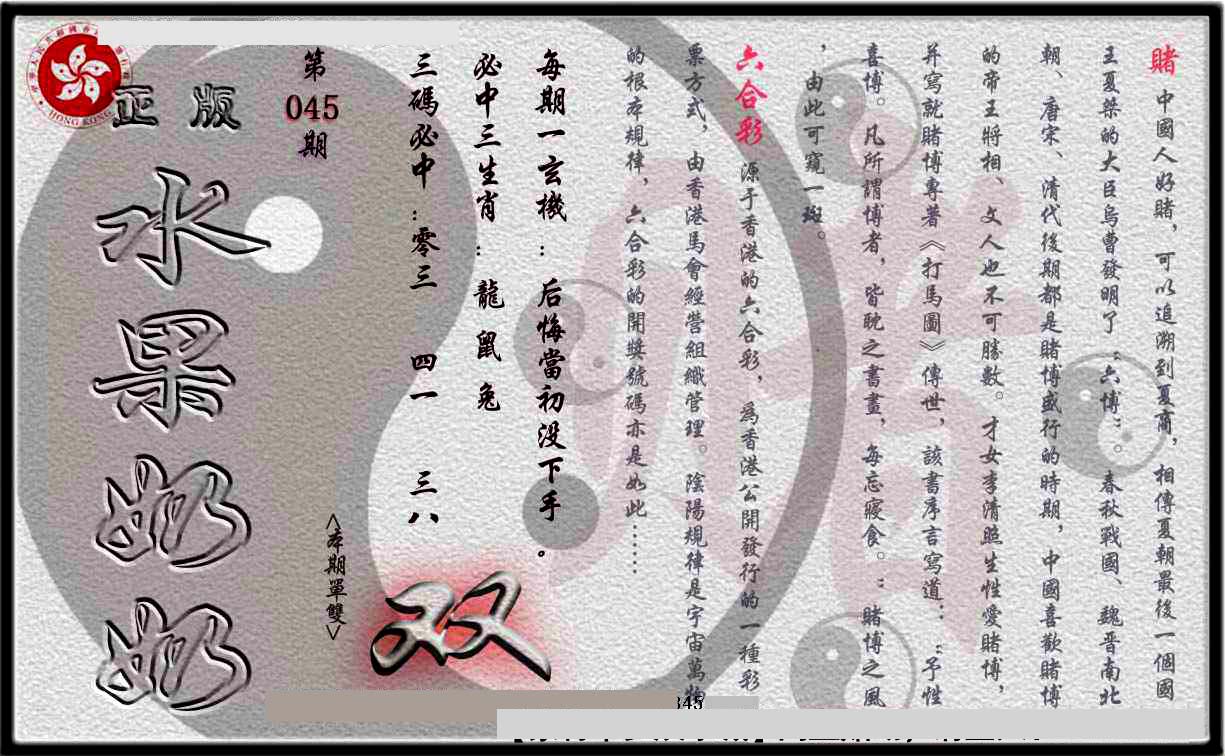 賭 中國人好賭，可以追溯到夏商，相傳夏朝最後一個國
王夏桀的大臣烏曹發明了“六博”。春秋戰國、魏晉南北
朝、唐宋、清代後期都是賭博盛行的時期，中國喜歡賭博
的帝王將相、文人也不可勝數。才女李清照生性愛賭博，
并寫就賭博專著《打馬圖》傳世，該書序言寫道：“予性
喜博。凡所謂博者，皆耽之書畫，每忘寢食。”賭博之風
，由此可窺一斑。
六合彩 源于香港的六合彩，為香港公開發行的一種彩
票方式，由香港馬會經營組織管理。陰陽規律是宇宙萬物
的根本規律，六合彩的開獎號碼亦是如此……
每期一玄機：后悔當初没下手。
必中三生肖：龍鼠兔
三碼必中：零三 四一 三八
第045期
<本期單雙>
双
正版
水果奶奶
HONG KONG
345